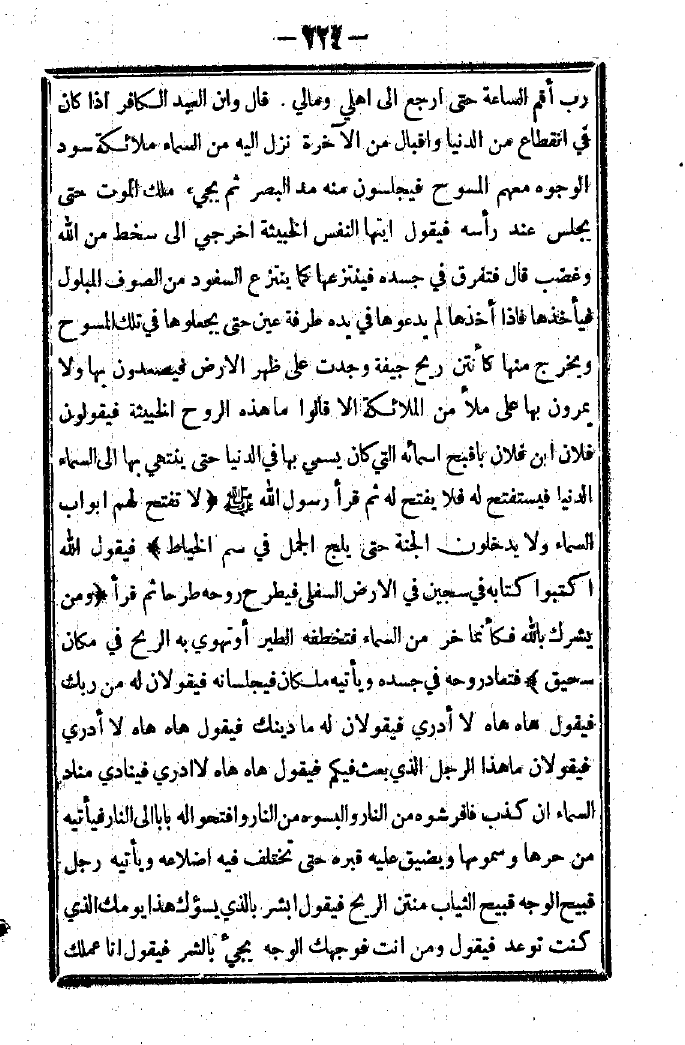 — ٢٢٤ —
رب أقم الساعة حتى ارجع الى اهلي ومالي . قال وان العبد الكافر اذا كان
في انقطاع من الدنيا واقبال من الآخرة نزل اليه من السماء ملائكة سود
الوجوه معهم المسوح فيجلسون منه مد البصر ثم يجيء ملك الموت حتى
يجلس عند رأسه فيقول ايتها النفس الخبيثة اخرجي الى سخط من الله
وغضب قال فتفرق في جسده فينتزعها كما ينتزع السفود من الصوف المبلول
فيأخذها فاذا أخذها لم يدعوها في يده طرفة عين حتى يجعلوها في تلك المسوح
ويخرج منها كأنتن ريح جيفة وجدت على ظهر الارض فيصعدون بها ولا
يمرون بها على ملأ من الملائكة الا قالوا ما هذه الروح الخبيثة فيقولون
فلان ابن فلان باقبح اسمائه التي كان يسمي بها في الدنيا حتى ينتهي بها الى السماء
الدنيا فيستفتح له فلا يفتح له ثم قرأ رسول الله ﷺ ﴿ لا تفتح لهم ابواب
السماء ولا يدخلون الجنة حتى يلج الجمل في سم الخياط ﴾ فيقول الله
اكتبوا كتابه في سجين في الارض السفلى فيطرح روحه طرحا ثم قرأ ﴿ ومن
يشرك بالله فكأنما خر من السماء فتخطفه الطير أو تهوي به الريح في مكان
سحيق ﴾ فتعاد روحه في جسده ويأتيه ملكان فيجلسانه فيقولان له من ربك
فيقول هاه هاه لا أدري فيقولان له ما دينك فيقول هاه هاه لا أدري
فيقولان ما هذا الرجل الذي بعث فيكم فيقول هاه هاه لا ادري فينادي مناد
السماء ان كذب فافرشوه من النار والبسوه من النار وافتحوا له بابا الى النار فيأتيه
من حرها وسمومها ويضيق عليه قبره حتى تختلف فيه اضلاعه ويأتيه رجل
قبيح الوجه قبيح الثياب منتن الريح فيقول ابشر بالذي يسؤك هذا يومك الذي
كنت توعد فيقول ومن انت فوجهك الوجه يجيء بالشر فيقول انا عملك